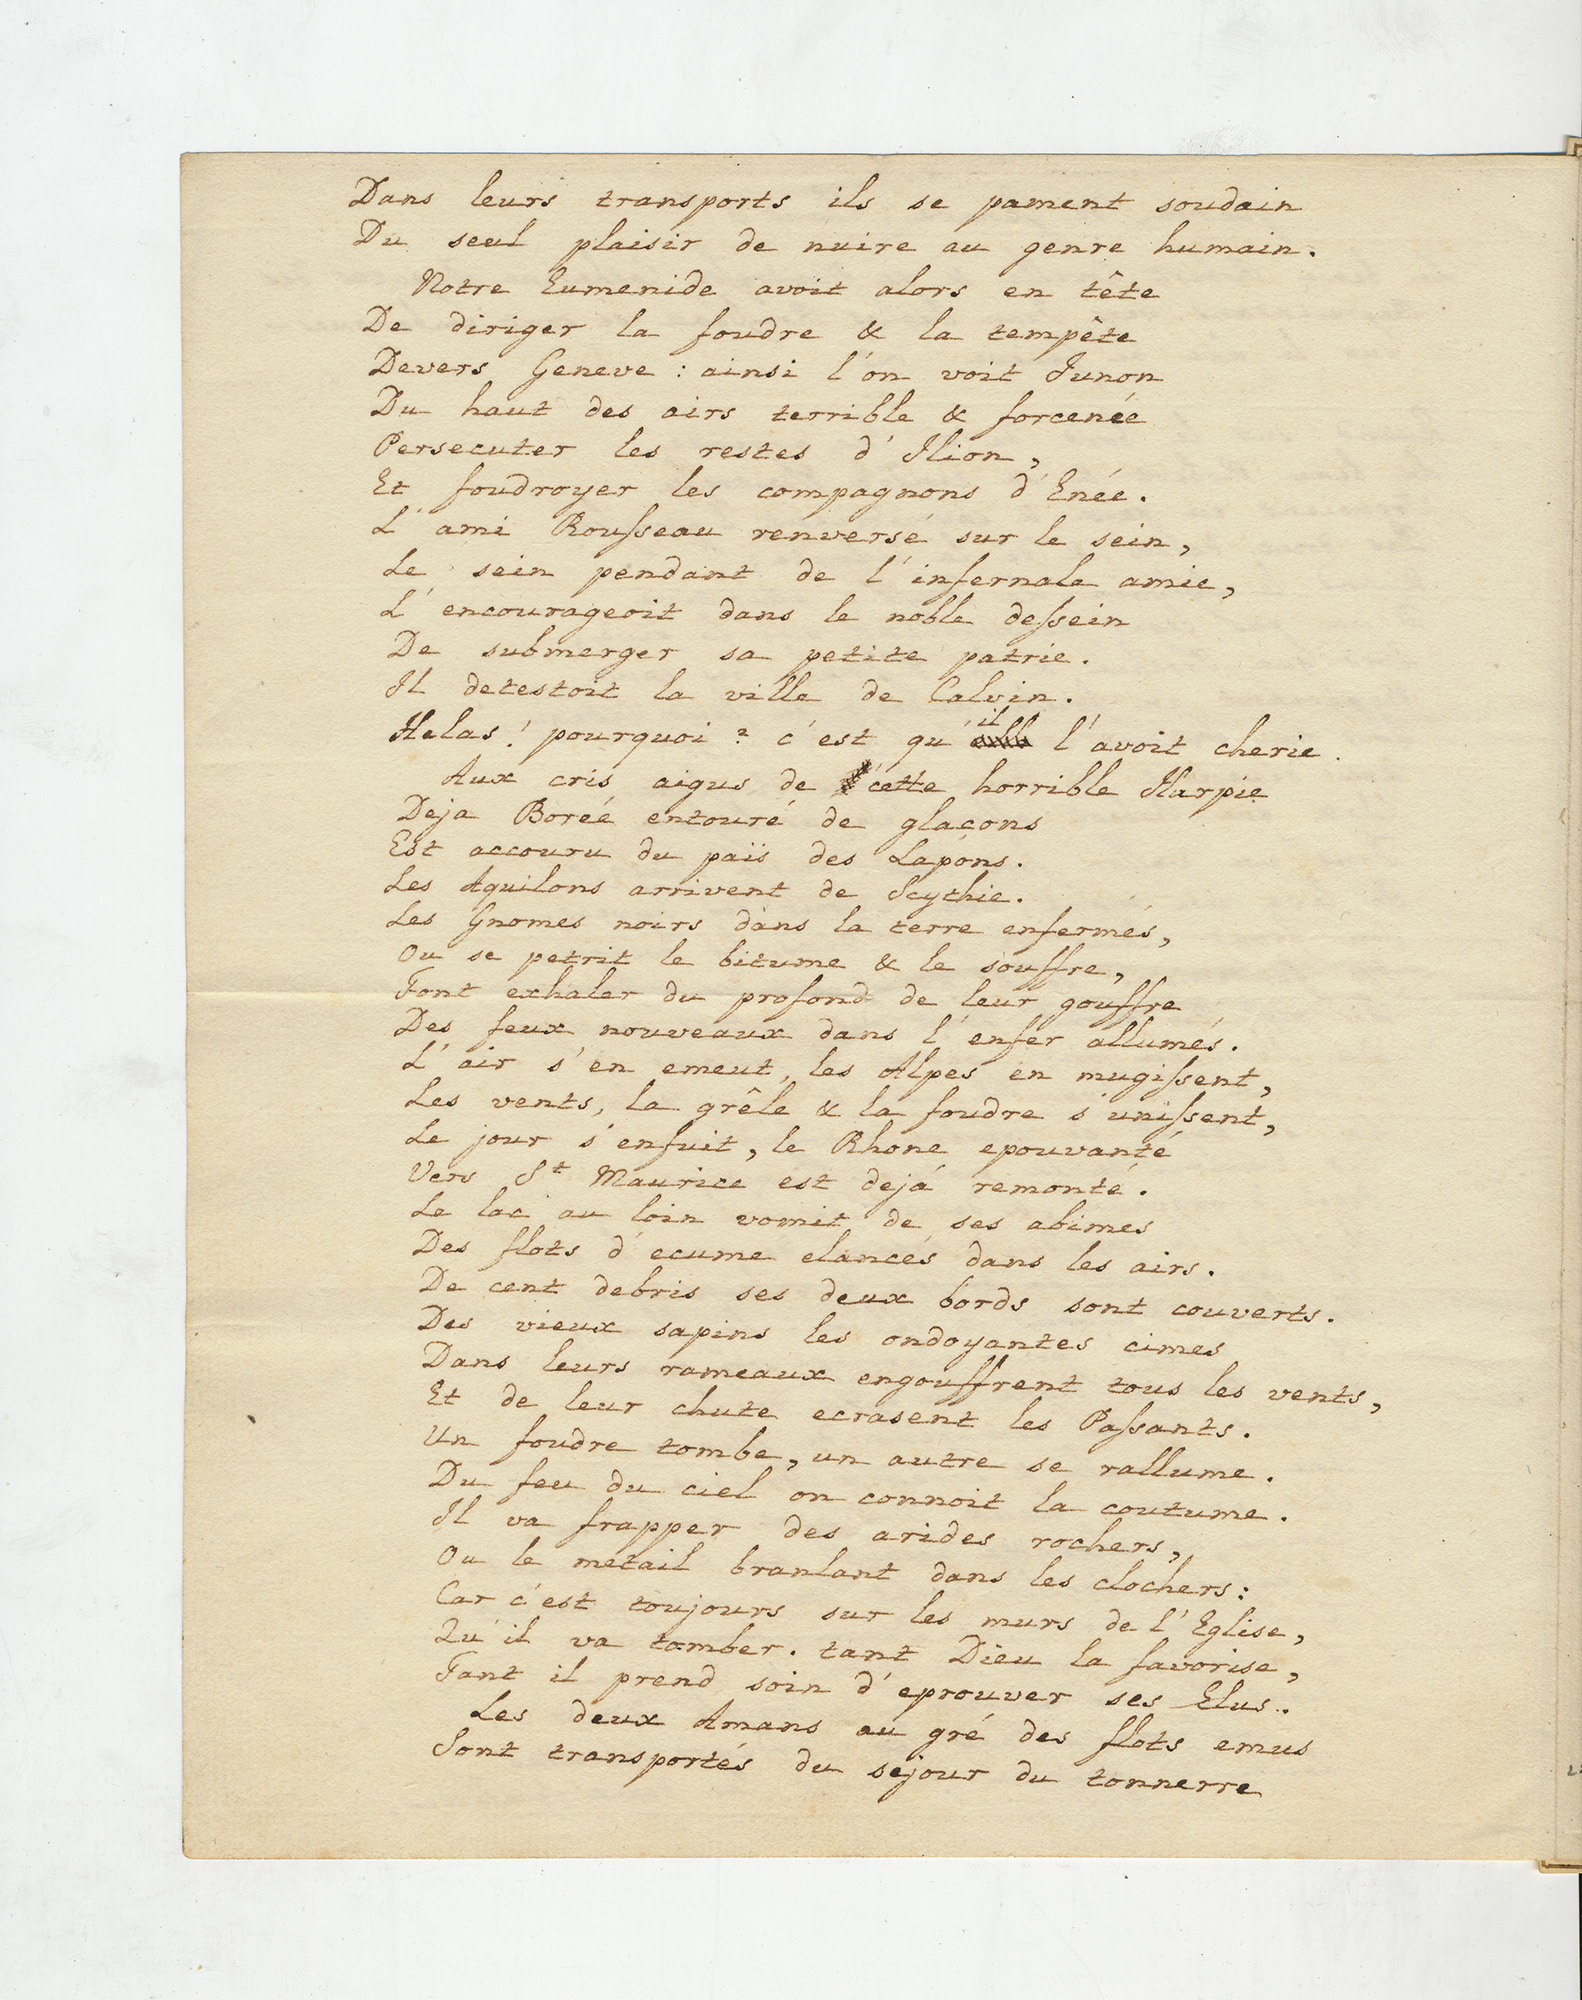 Dans leurs transports ils se pament soudain
Du seul plaisir de nuire au genre humain.
Notre Eumenide avoit alors en tête
De diriger la foudre & la tempête
Devers Geneve : ainsi l'on voit Junon
Du haut des airs terrible & forcenée
Persecuter les restes d'Ilion,
Et foudroyer les compagnons d'Enée.
L'ami Rouſseau renversé sur le sein,
Le sein pendant de l'infernale amie,
L'encourageoit dans le noble deſsein
De submerger sa petite patrie.
Il detestoit la ville de Calvin.
Helas! pourquoi? c'est qu'il l'avoit cherie.
Aux cris aigus de cette horrible Harpie
Deja Boréé entouré de glaçons
Est accouru du païs des Lapons.
Les Aquilons arrivent de Scythie.
Les Gnomes noirs dans la terre enfermés,
Ou se petrit le bitume & le souffre,
Font exhaler du profond de leur gouffre
Des feux nouveaux dans l'enfer allumés.
L'air s'en emeut, les Alpes en mugiſsent,
Les vents, la grêle & la foudre s'uniſsent,
Le jour s'enfuit, le Rhone epouvanté
Vers St Maurice est dejá remonté.
Le lac au loin vomit de ses abimes
Des flots d'ecume elancés dans les airs.
De cent debris ses deux bords sont couverts.
Des vieux sapins les ondoyantes cimes
Dans leurs rameaux engouffrent tous les vents,
Et de leur chute ecrasent les Paſsants.
Un foudre tombe, un autre se rallume.
Du feu du ciel on connoit la coutume.
Il va frapper des arides rochers,
Ou le metail branlant dans les clochers:
Car c'est toujours sur les murs de l'Eglise,
Qu'il va tomber. tant Dieu la favorise,
Tant il prend soin d'eprouver ses Elus..
Les deux Amans au gré des flots emus
Sont transportés du sejour du tonnerre